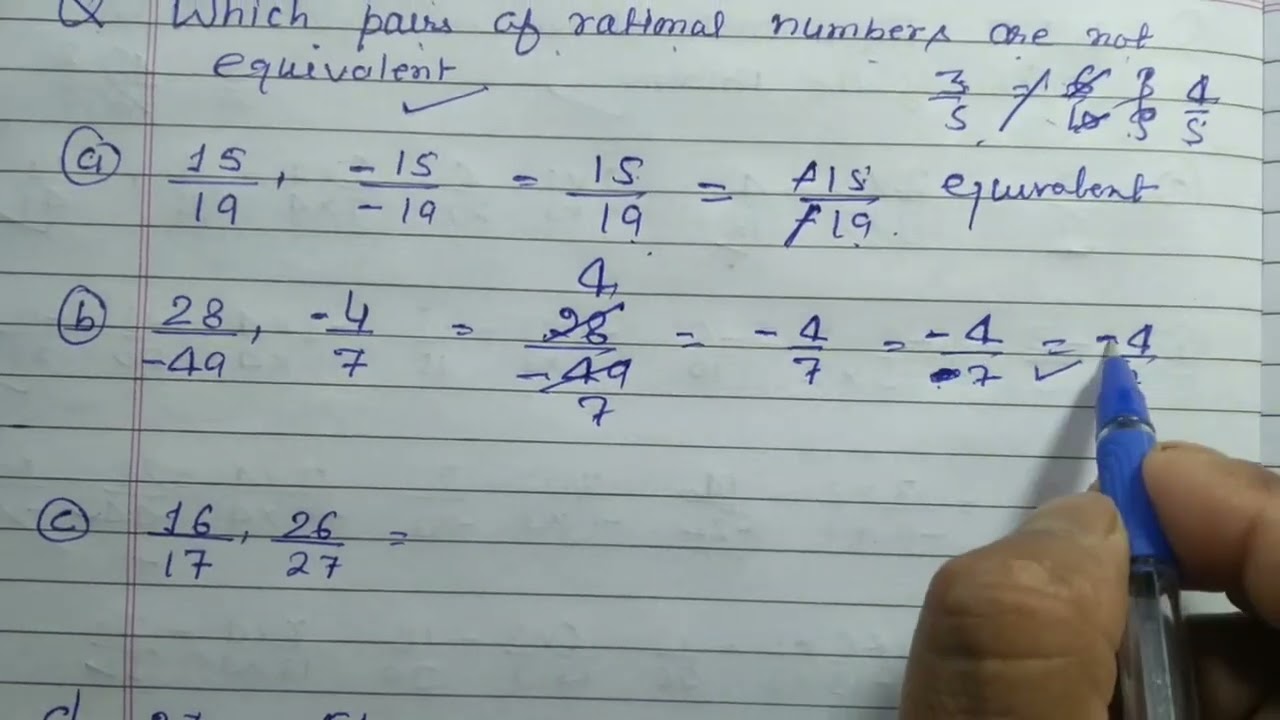 Q Which pairs of rational numbers are not
equivalent
3/5 = 6/10 3/5 4/5
(a) 15/19, -15/-19 = 15/19 = -15/-19 equivalent
(b) 28/-49, -4/7 = 28/-49 4/7 = -4/7 = -4/7 = -4
(c) 16/17, 26/27 =
d